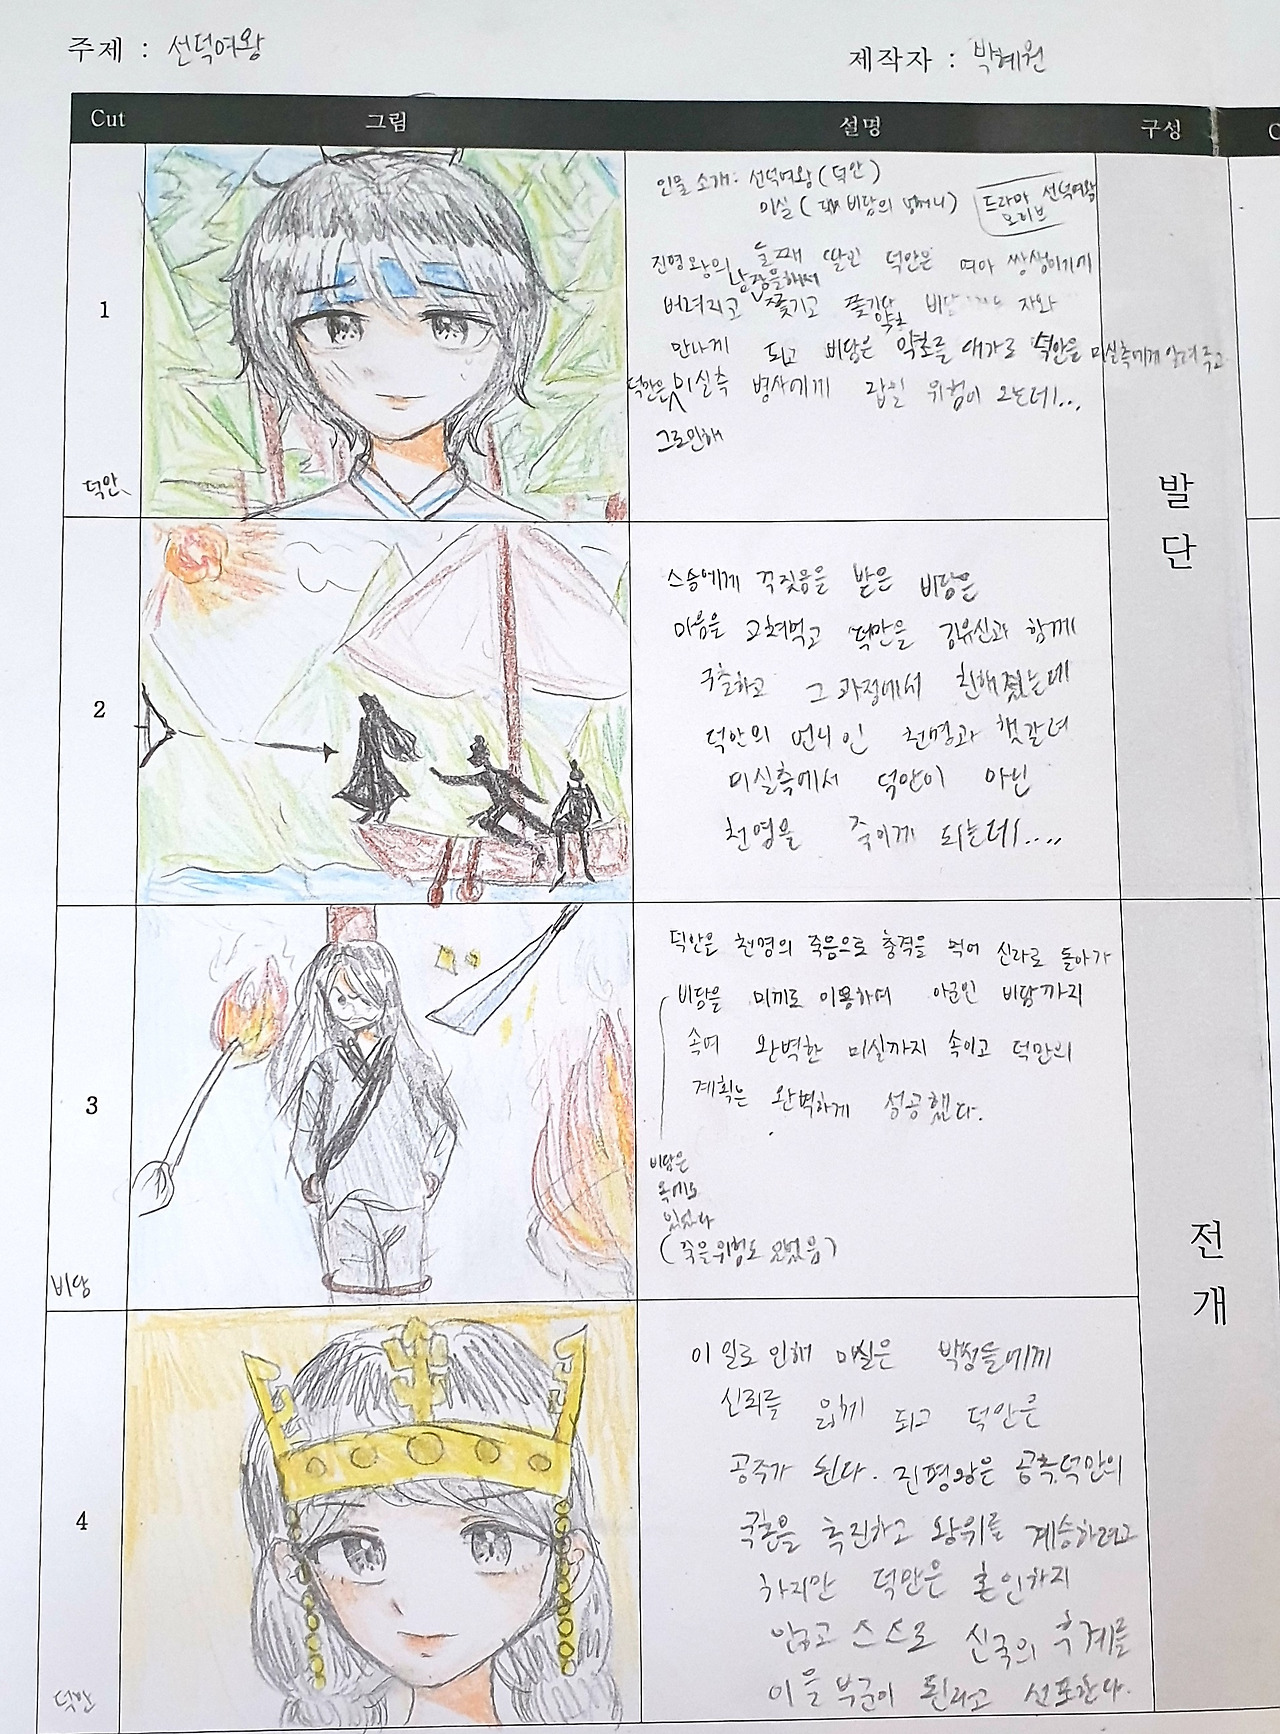 주제 : 선덕여왕
제작자 : 박혜원
Cut 그림 설명 구성 C
1
덕만
인물 소개: 선덕여왕 (덕만)
미실 ( 비담의 어머니)
드라마 선덕여왕
모티브
진평왕의 둘째 딸인 덕만은 여아 쌍생이기에
남장을해서
버려지고 쫓기고 쫓기던 비담 자와
약초
만나게 되고 비담은 약초를 대가로 덕만을 미실측에게 알려주고
덕만은 미실측 병사에게 잡힐 위험이 오는데...
그로인해
발단
2
스승에게 꾸짖음을 받은 비담은
마음을 고쳐먹고 덕만을 김유신과 함께
구출하고 그 과정에서 친해졌는데
덕만의 언니인 천명과 헷갈려
미실측에서 덕만이 아닌
천명을 죽이게 되는데....
3
비담
덕만은 천명의 죽음으로 충격을 먹어 신라로 돌아가
비담을 미끼로 이용하며 아군인 비담까지
속여 완벽한 미실까지 속이고 덕만의
계획은 완벽하게 성공했다.
비담은
옥에도
있었다
(죽을위험도 있었음)
전개
4
덕만
이 일로 인해 미실은 백성들에게
신뢰를 잃게 되고 덕만은
공주가 된다. 진평왕은 공주덕만의
국혼을 추진하고 왕위를 계승하려고
하지만 덕만은 혼인하지
않고 스스로 신국의 후계를
이을 부군이 된다고 선포한다.